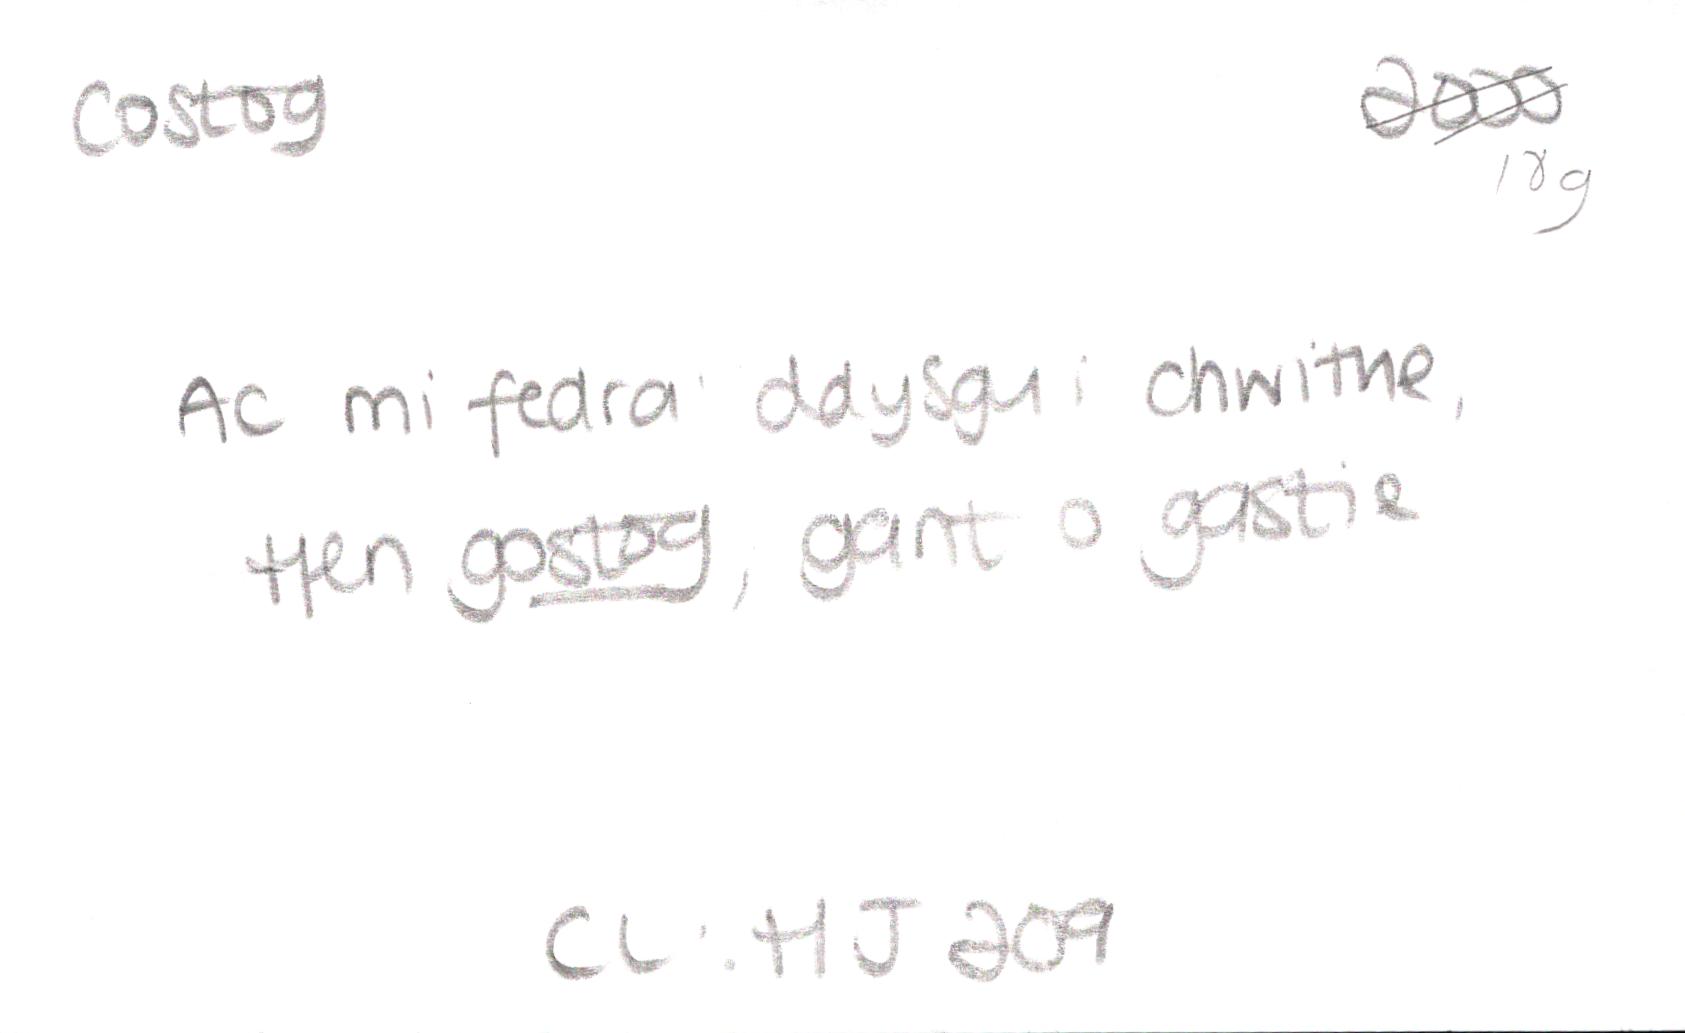 Costog
2000
18g
Ac mi fedra' ddysgu i chwithe,
Hen gostog, gant o gastie
CL: HJ 209